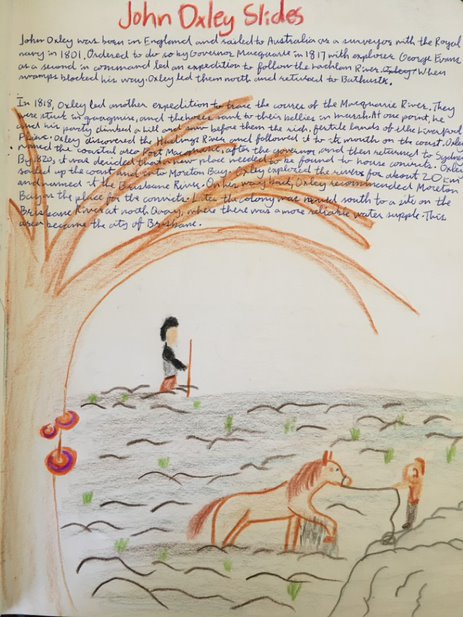 John Oxley Slides
John Oxley was born in England and sailed to Australia as a surveyor with the Royal
navy in 1801. Ordered to do so by Governor Macquarie in 1817 with explorer George Evans
as a second in command led an expedition to follow the Lachlan River. When
swamps blocked his way. Oxley led them north and returned to Bathurst.
In 1818, Oxley led another expedition to trace the course of the Macquarie River. They
were stuck in quagmire, and the horses sank to their bellies in marsh. At one point, he
and his party climbed a hill and saw before them the rich, fertile lands of the Liverpool
Plains. Oxley discovered the Hastings River and followed it to it's mouth on the coast. Oxley
named the coastal area Port Macquarie, after the governor and then returned to Sydney.
By 1820, it was decided that a new place needed to be found to house convicts. Oxley
sailed up the coast and into Moreton Bay. Oxley explored the rivers for about 20
and named it the Brisbane River. On his way back, Oxley recommended Moreton
Bay as the place for the convicts. Later the colony was moved south to a site on the
Brisbane River at north Quay, where there was a more reliable water supply. This
area became the city of Brisbane.